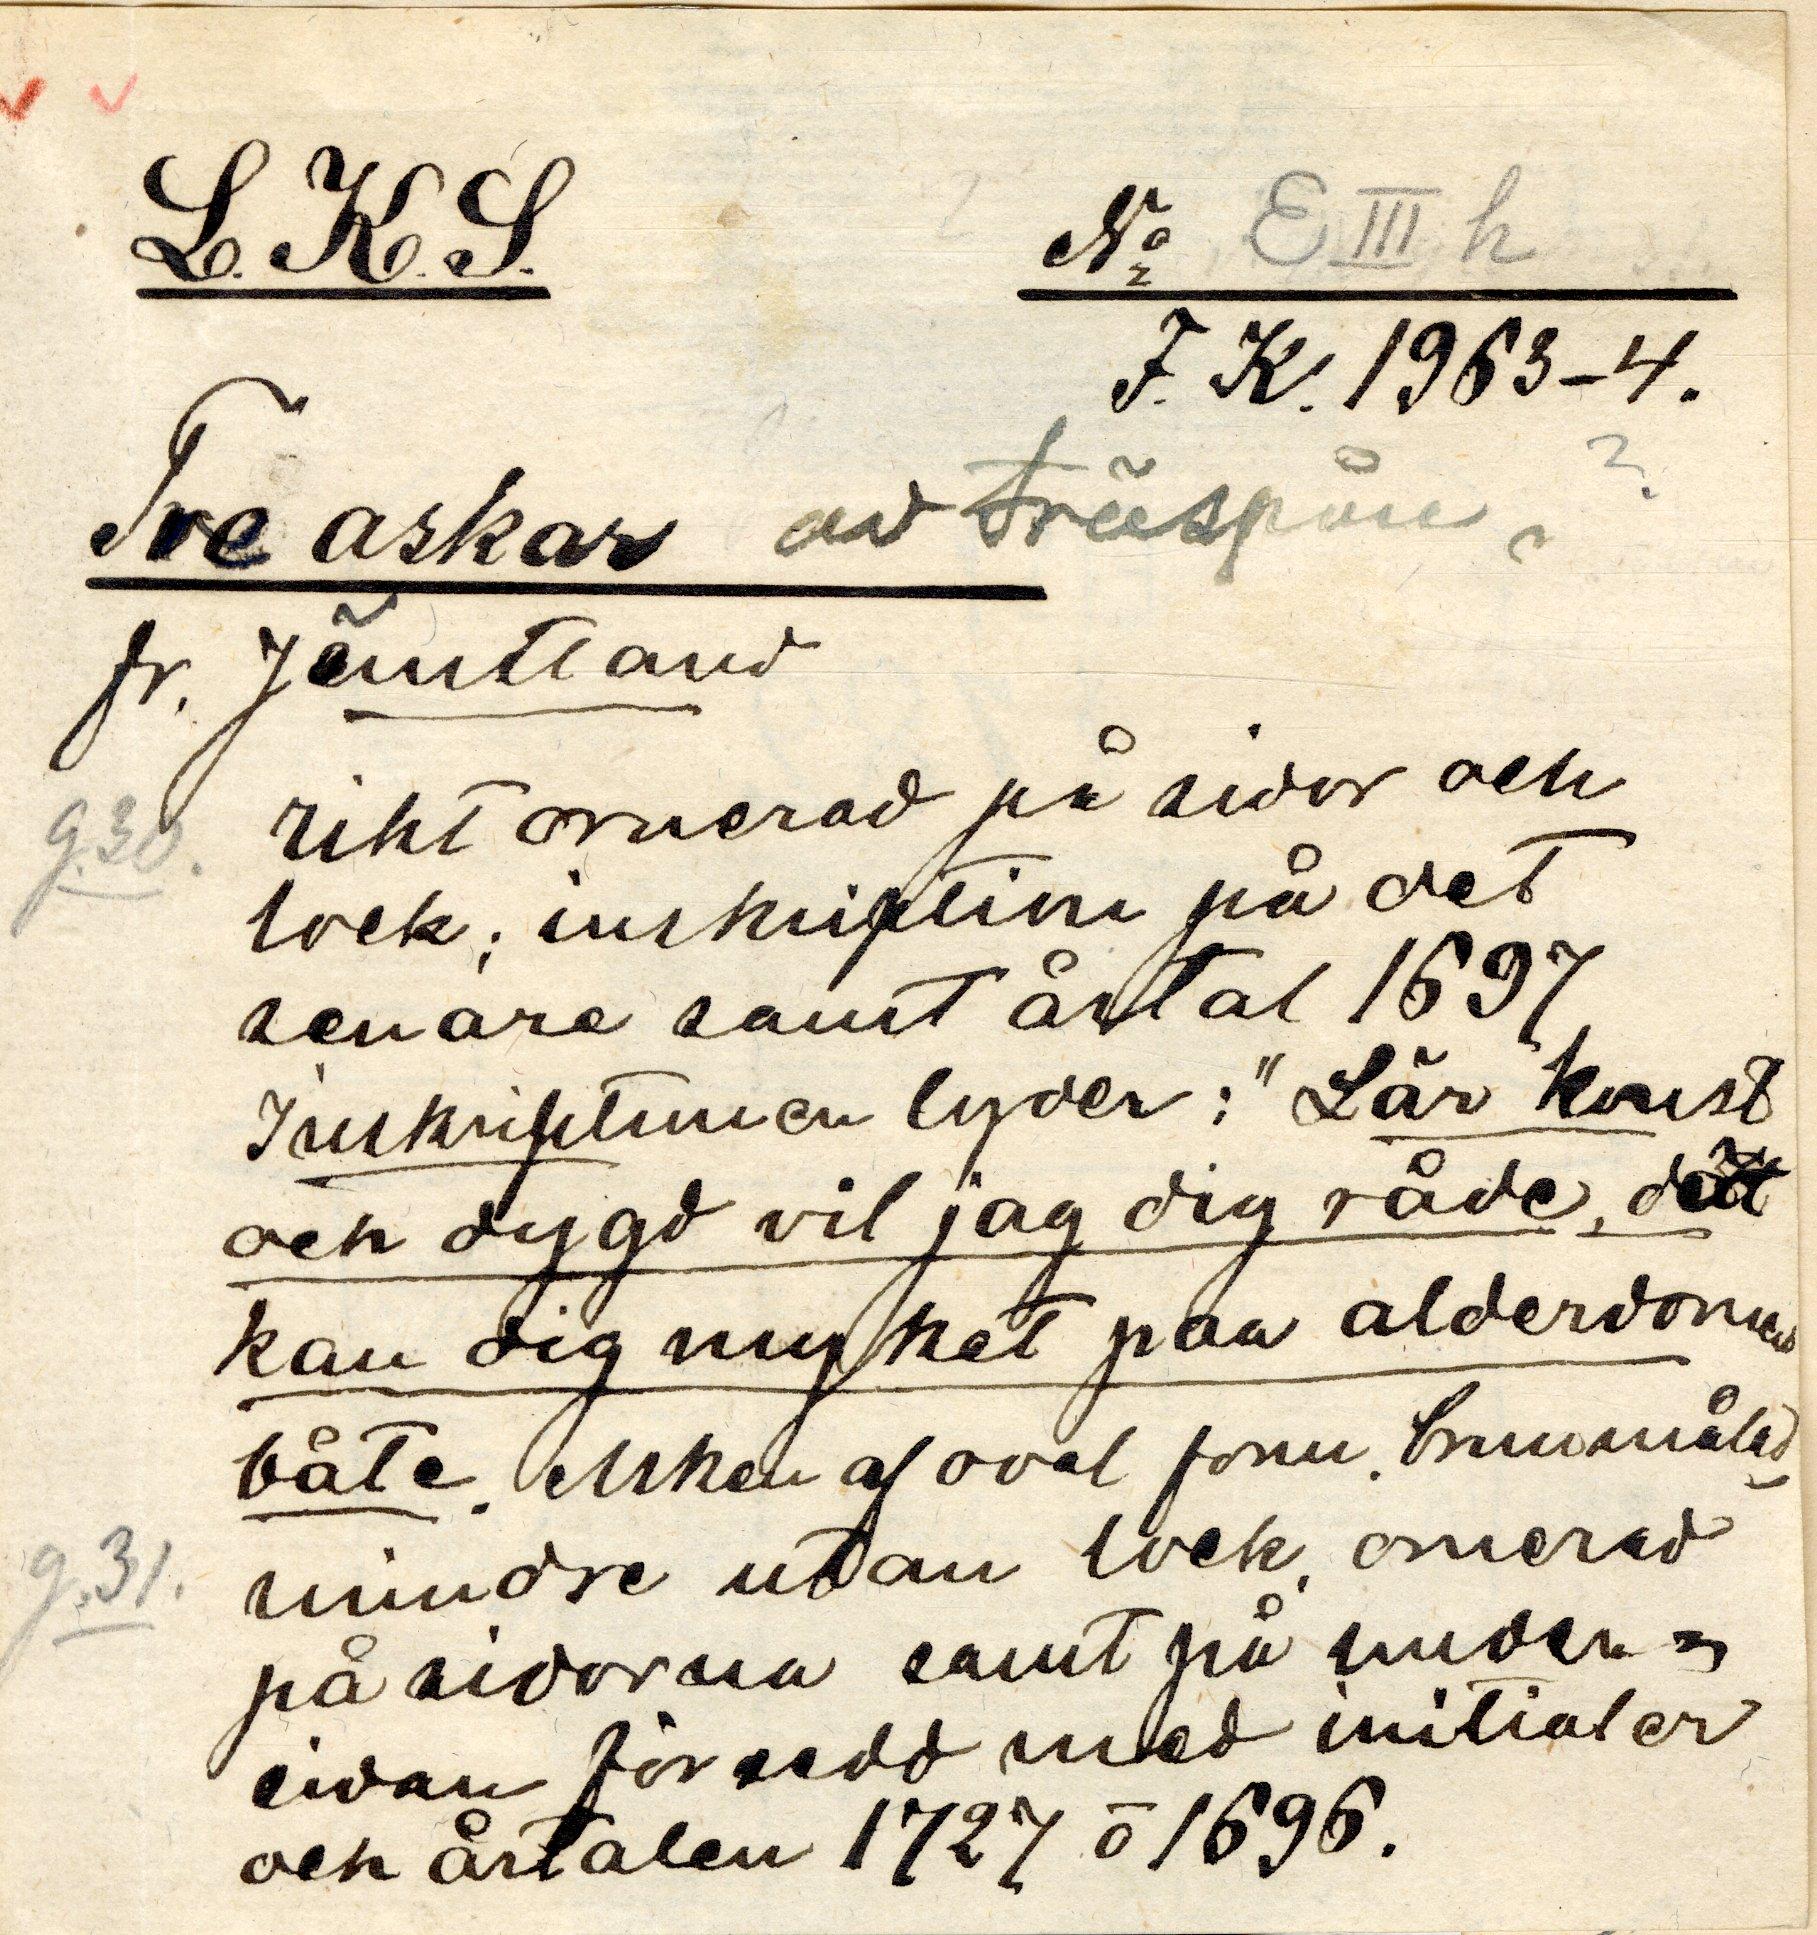 L.K.S.
No E III h
F.K. 1963-4.
Tve askar av träspån ?
fr. Jämtland
g.30. rikt ornerad på sidor och
lock; inskription på det
senare samt årtal 1697
Inskriptionen lyder: "Lär konst
och dygd vil jag dig råde, dätt
kan dig myket paa alderdomen
båte. Asken af oval form. brunmålad
g.31. mindre utan lock, ornerad
på sidorna samt på under=
sidan försedd med initialer
och årtalen 1727 o 1696.